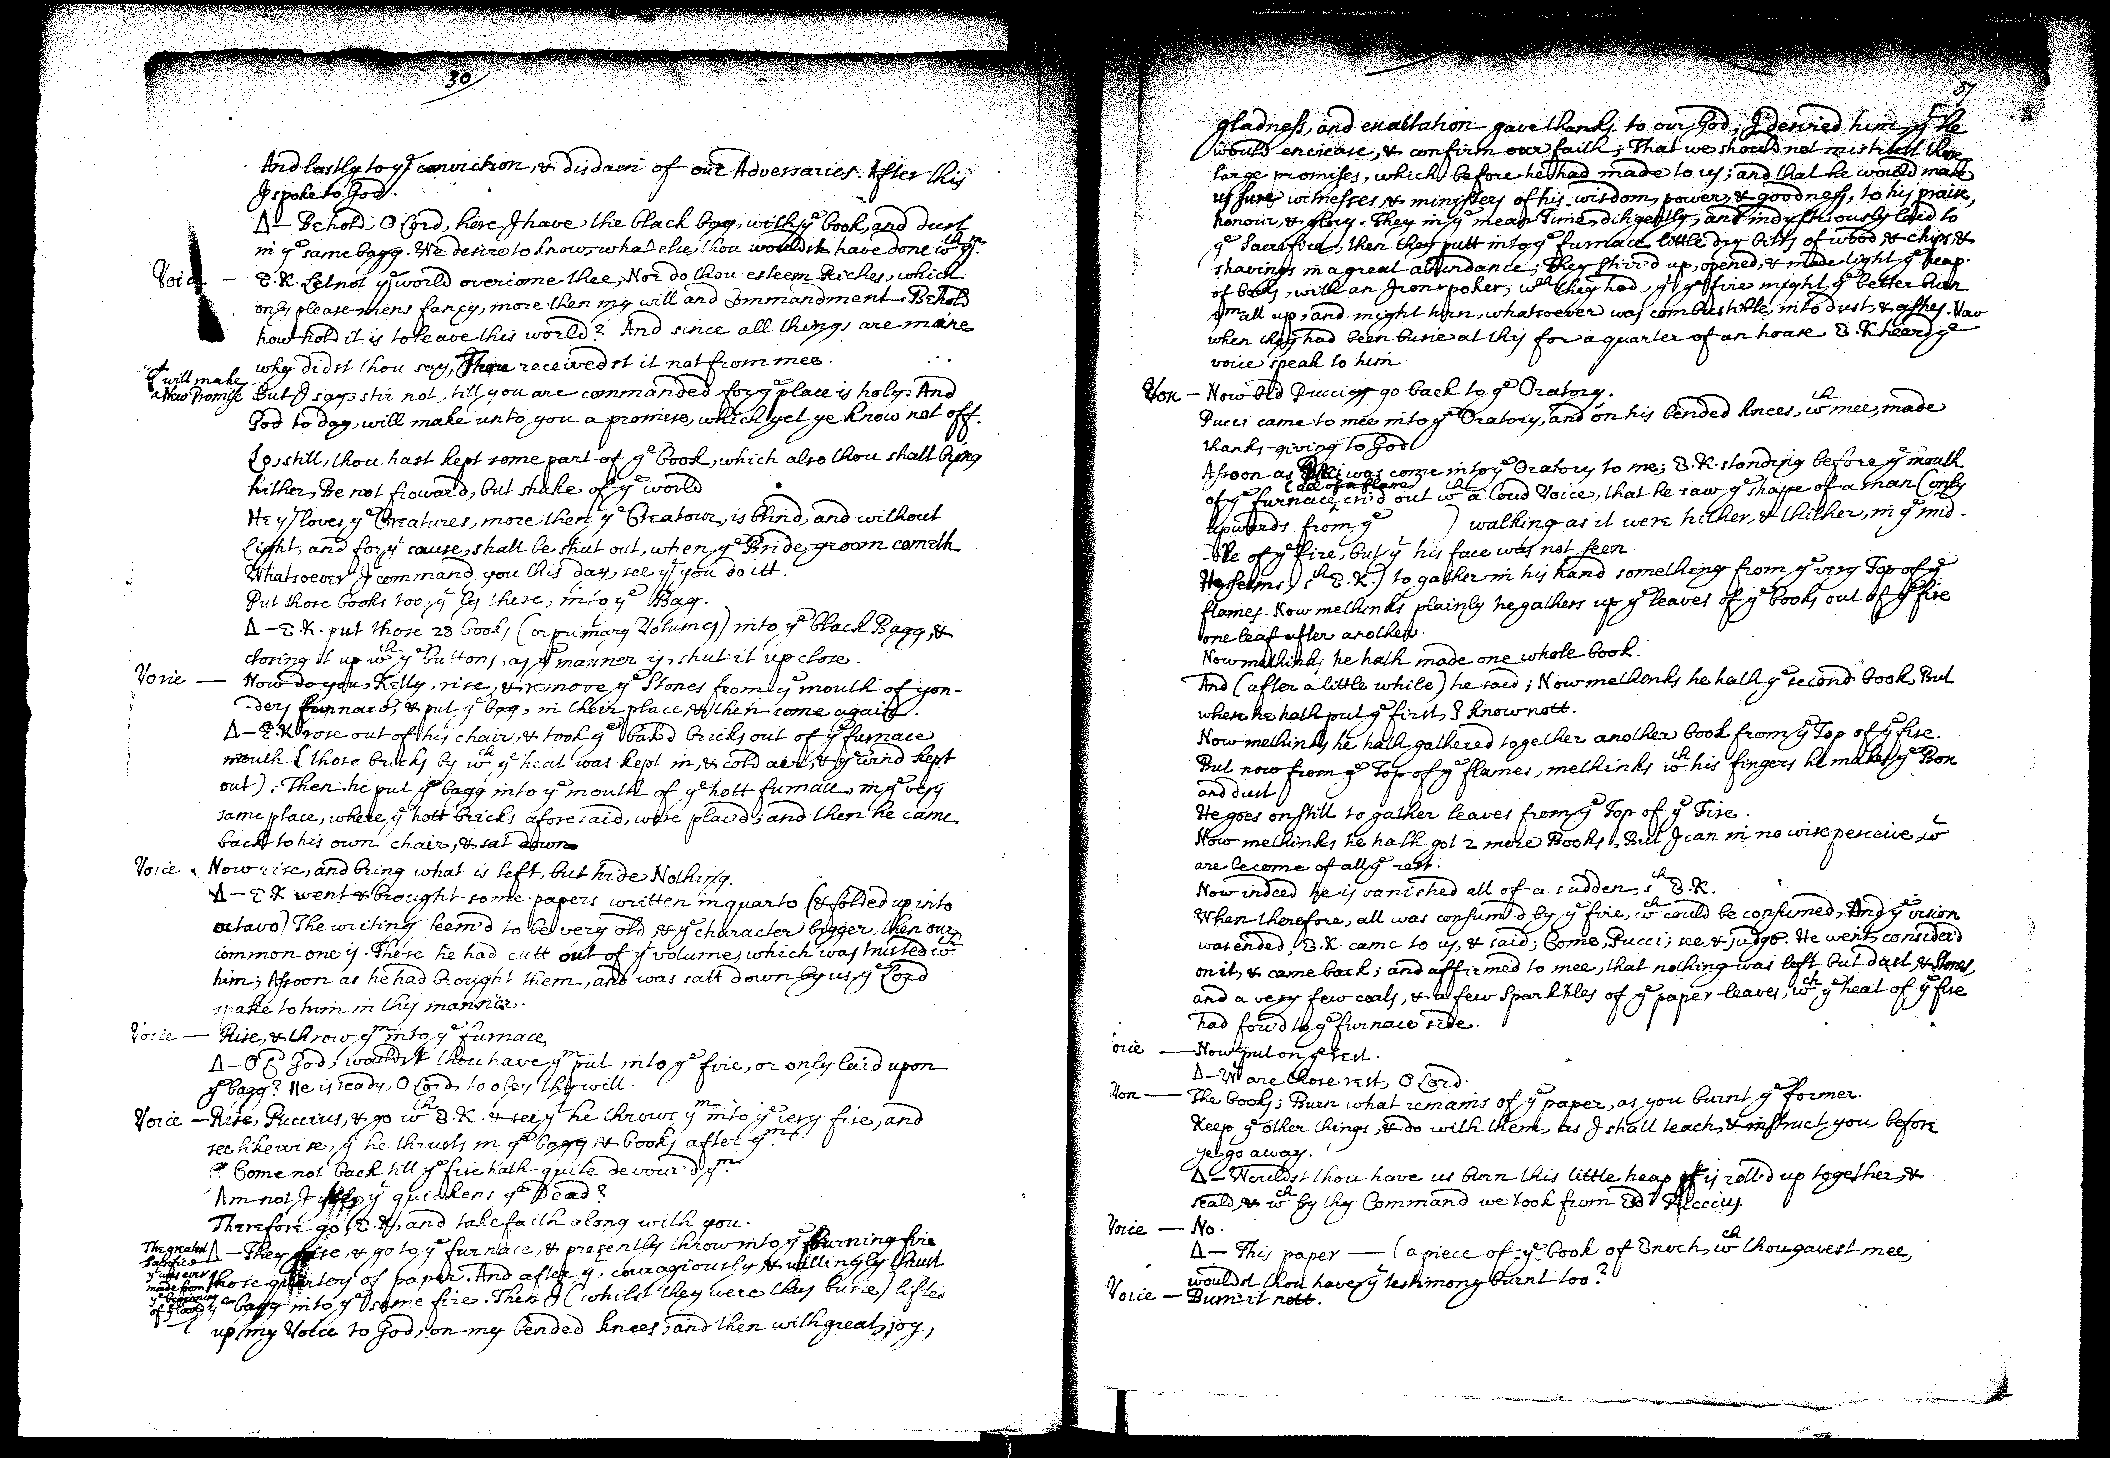 30
And lastly to yͤ conviction, & disdain of our Adversaries. After this
I spoke to God.
Δ — Behold, O Lord, here I have the black bag, with yͤ book, and dust
in yͤ same bagg. We desire to know, what else, thou wouldst have done wͭʰ yᵐ.
Voice — E.K. Let not yͤ world overcome thee, Nor do thou esteem Riches, which
only please mens fancy, more then my will and Commandment. Behold
how hold it is to leave this world? And since all things are mine
why didst thou say, Thou receivedst it not from mee.
will make
a New Promise
But I say, stir not, till you are commanded for yͤ place is holy: And
God to day, will make unto you a promise, which yet ye know not off.
Lo, still, thou hast kept some part of yͤ book, which also thou shall bring
hither, Be not froward, but shake of yͤ world
He yͭ loves yͤ Creatures, more then yͤ Creatour, is blind, and without
Light, and for yͭ cause, shall be shut out, when yͤ Bride-groom cometh
Whatsoever I command you this day, see yͭ you do itt.
Put those books too, yͭ ly there, into yͤ Bag.
Δ — E.K. put those 28 books (or primary Volumes) into yͤ black Bagg, &
closing it up wͭʰ yͤ buttons, as yͤ manner is, shut it up close.
Voice — Now do you, Kelly, rise, & remove yͤ Stones from yͤ mouth of yon-
der furnace, & put yͤ bag, in their place, & then come again.
Δ — E.K. rose out of his chair, & took yͤ bak'd bricks out of yͤ furnace
mouth (those bricks by wͨʰ yͤ heat was kept in, & cold aer, & yͤ wind kept
out): Then he put yͤ bagg into yͤ mouth of yͤ hott furnace, in yͤ very
same place, where yͤ hott bricks aforesaid, were plac'd; and then he came
back to his own chair, & sat down
Voice . Now rise, and bring what is left, but hide Nothing.
Δ — E K went & brought some papers written in quarto (& folded up into
octavo) The writing seem'd to be very old & yͤ character bigger, then our
common one is. These he had cutt out of yͤ volume, which was trusted wͭʰ
him; Assoon as he had brought them, and was satt down by us, yͤ Lord
spake to him in this manner.
Voice — Rise, & throw yᵐ into yͤ furnace
Δ — O Lͩ God, wouldst thou have yᵐ put into yͤ fire, or only laid upon
yͤ bagg? He is ready, O Lord, to obey thy will.
Voice — Rise, Puccius, & go wͭʰ E K. & see yͭ he throws yᵐ into yͤ very fire, and
see likewise, yͭ he thrusts in yͤ bagg & books after yᵐ.
Come not back till yͤ fire hath quite devour'd yᵐ
Am not I yͭ quickens yͤ Dead?
Therefore go, E.K, and take faith along with you.
The greatest
Sacrifice
yͭ was ever
made from
yͤ beginning
of yͤ world
Δ — They rise, & go to yͤ furnace, & presently throw into yͤ burning fire
those quartos of paper. And after yͭ couragiously & willingly thrust
yͤ bagg into yͤ same fire. Then I (whilst they were thus busie) lifted
up my Voice to God, on my bended knees, and then with great joy,
gladness, and exaltation gave thanks to our God; I desired him yͭ he
would encrease, & confirm our faith; That we should not mistrust those
large promises, which before he had made to us; and that he would make
us sure witnesses & ministers of his wisdom, power, & goodness, to his praise,
honour, & glory. They in yͤ mean Time, diligently, and industriously laid to
yͤ Sacrifice, then they putt into yͤ furnace little dry bitts of wood & chips, &
shavings in a great abundance; They stirr'd up, opened, & made light yͤ heap
of books, with an Iron poker, wͨʰ they had, yͭ yͤ fire might yͤ better burn
yᵐ all up, and might turn, whatsoever was combustible, into dust, & ashes. Now
when they had been busie at this for a quarter of an houre E.K heard yͤ
voice speak to him
Voice — Now bid Puccius go back to yͤ Oratory.
Pucci came to mee into yͤ Oratory, and on his bended knees, wͭʰ mee, made
thanks-giving to God
Assoon as Pucci was come into yͤ Oratory to me; E.K. standing before yͤ mouth
of yͤ furnace, cri'd out wͭʰ a loud Voice, that he saw yͤ shape of a man (only
upwards from yͤ ) walking as it were hither, & thither, in yͤ mid-
dle of yͤ fire, but yͭ his face was not seen
He seems, (sͭʰ E.K.) to gather in his hand something from yͤ very Top of yͤ
flames. Now methinks plainly he gathers up yͤ leaves of yͤ books out of yͤ fire
one leaf after another.
Now methinks he hath made one whole book.
And (after a little while) he said; Now methinks he hath yͤ second book, But
where he hath put yͤ first, I know nott.
Now methinks he hath gathered together another book from yͤ Top of yͤ fire.
But now from yͤ Top of yͤ flames, methinks wͭʰ his fingers he makes yͤ Box
and dust
He goes on still to gather leaves from yͤ Top of yͤ Fire.
Now methinks he hath got 2 more Books, But I can in no wise perceive wͭ
are become of all yͤ rest.
Now indeed he is vanished all of a sudden, sͭʰ E.K.
When therefore, all was consum'd by yͤ fire, wͨʰ could be consumed, And yͤ vision
was ended, E.K came to us, & said; Come, Pucci; see & judge. He went, consider'd
on it, & came back; and affirmed to mee, that nothing was left but dust, & Stones,
and a very few coals, & a few Sparkles of yͤ paper-leaves, wͨʰ yͤ heat of yͤ fire
had forc'd to yͤ furnace side.
Voice — Now put on yͤ rest.
Δ — Wͭ are those rest, O Lord.
Voice — The books; Burn what remains of yͤ paper, as you burnt yͤ former.
Keep yͤ other things, & do with them, as I shall teach, & instruct you before
ye go away.
Δ — Wouldst thou have us burn this little heap yͭ is roll'd up together, &
seald, & wͨʰ by thy Command we took from Puccius
Voice — No.
Δ — This paper — (a piece of yͤ book of Enoch, wͨʰ thou gavest mee,
wouldst thou have yͤ testimony burnt too?
Voice — Burn it nott.